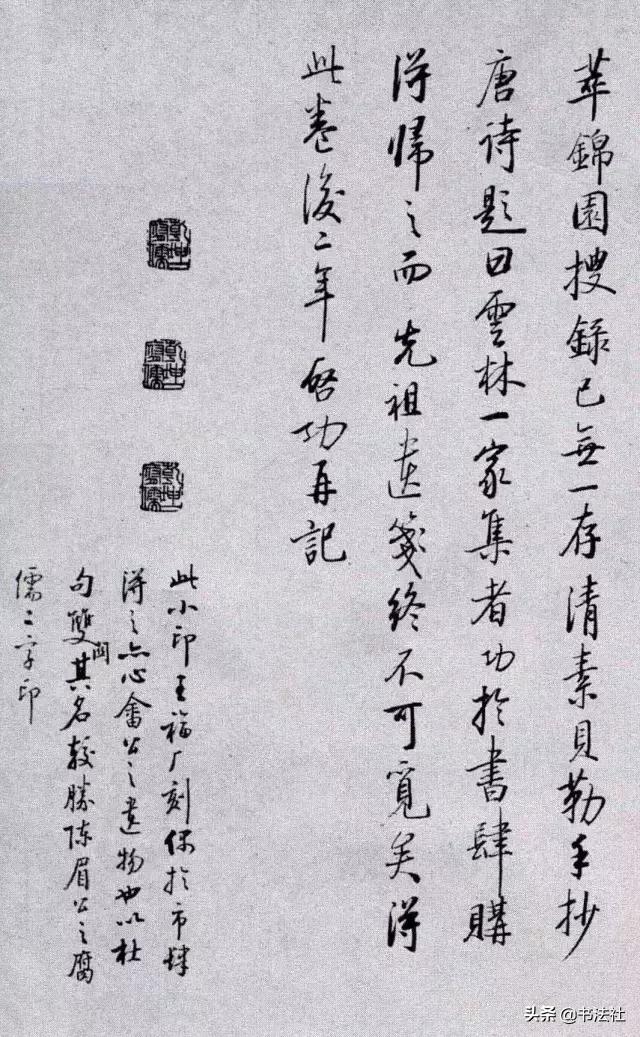 萃錦園搜錄已無一存清素貝勒手抄
唐詩題曰雲林一家集者功於書肆購
得歸之而先祖遺箋終不可覓矣得
此卷後二年啓功再記
此小印王福厂刻偶於市肆
得之亦心畬公之遺物也以杜
句雙關其名較勝陈眉公之腐
儒二字印
头条 @书法社